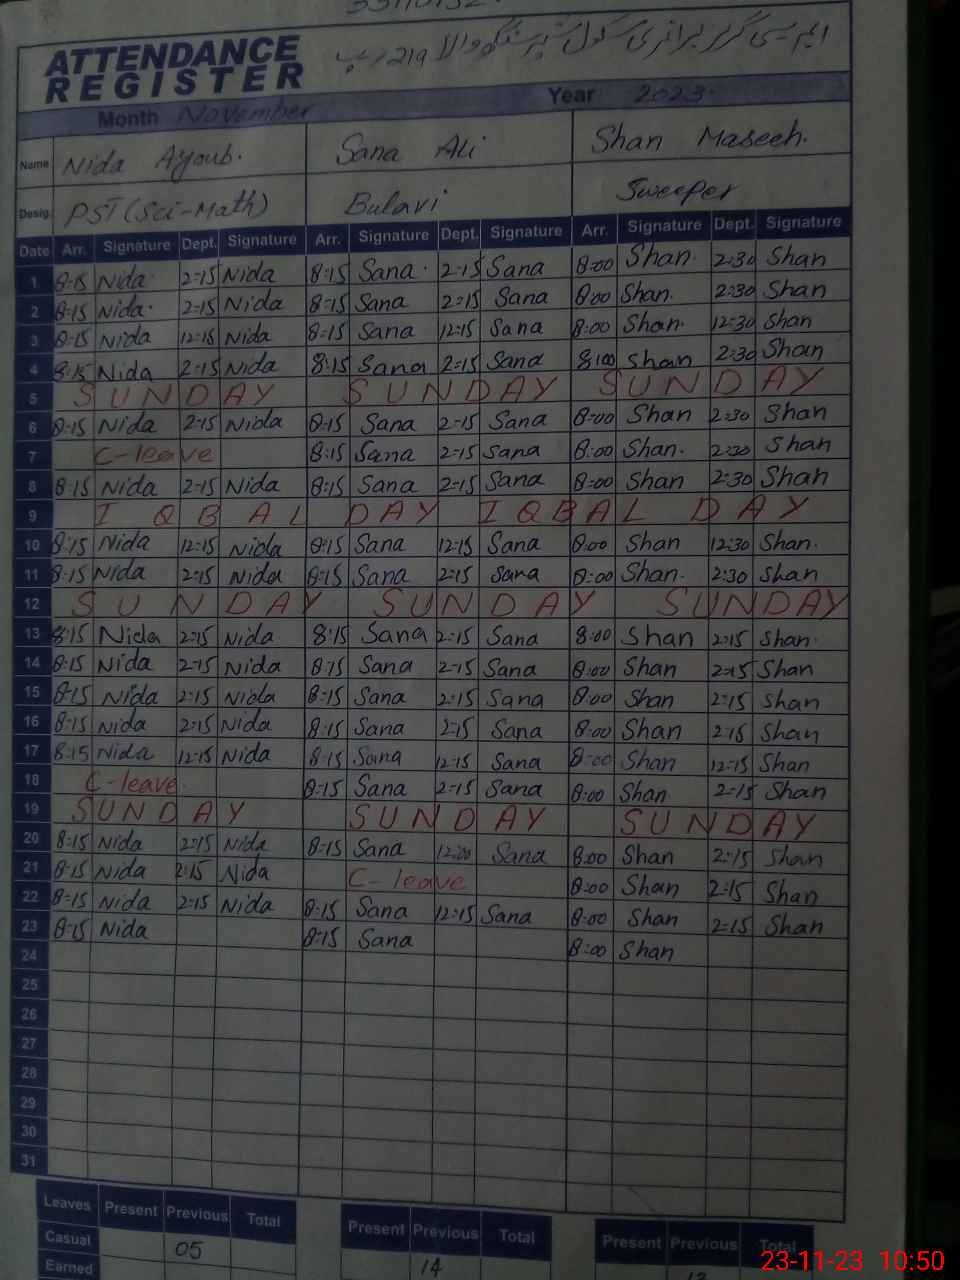 ATTENDANCE
REGISTER
Month November Year 2023
Name Nida Ayoub. Sana Ali Shan Maseeh.
Desig. PST (Sci-Math) Bulavi Sweeper
Date Arr. Signature Dept. Signature Arr. Signature Dept. Signature Arr. Signature Dept. Signature
1 8:15 Nida 2:15 Nida 8:15 Sana 2:15 Sana 8:00 Shan 2:30 Shan
2 8:15 Nida 2:15 Nida 8:15 Sana 2:15 Sana 8:00 Shan 2:30 Shan
3 8:15 Nida 12:15 Nida 8:15 Sana 12:15 Sana 8:00 Shan 12:30 Shan
4 8:15 Nida 2:15 Nida 8:15 Sana 2:15 Sana 8:00 Shan 2:30 Shan
5 SUNDAY SUNDAY SUNDAY
6 8:15 Nida 2:15 Nida 8:15 Sana 2:15 Sana 8:00 Shan 2:30 Shan
7 C-leave 8:15 Sana 2:15 Sana 8:00 Shan 2:30 Shan
8 8:15 Nida 2:15 Nida 8:15 Sana 2:15 Sana 8:00 Shan 2:30 Shan
9 IQBAL DAY IQBAL DAY
10 8:15 Nida 12:15 Nida 8:15 Sana 12:15 Sana 8:00 Shan 12:30 Shan
11 8:15 Nida 2:15 Nida 8:15 Sana 2:15 Sana 8:00 Shan 2:30 Shan
12 SUNDAY SUNDAY SUNDAY
13 8:15 Nida 2:15 Nida 8:15 Sana 2:15 Sana 8:00 Shan 2:15 Shan
14 8:15 Nida 2:15 Nida 8:15 Sana 2:15 Sana 8:00 Shan 2:15 Shan
15 8:15 Nida 2:15 Nida 8:15 Sana 2:15 Sana 8:00 Shan 2:15 Shan
16 8:15 Nida 2:15 Nida 8:15 Sana 2:15 Sana 8:00 Shan 2:15 Shan
17 8:15 Nida 12:15 Nida 8:15 Sana 12:15 Sana 8:00 Shan 12:15 Shan
18 C-leave 8:15 Sana 2:15 Sana 8:00 Shan 2:15 Shan
19 SUNDAY SUNDAY SUNDAY
20 8:15 Nida 2:15 Nida 8:15 Sana 12:00 Sana 8:00 Shan 2:15 Shan
21 8:15 Nida 2:15 Nida C-leave 8:00 Shan 2:15 Shan
22 8:15 Nida 2:15 Nida 8:15 Sana 12:15 Sana 8:00 Shan 2:15 Shan
23 8:15 Nida 8:15 Sana 8:00 Shan
24
25
26
27
28
29
30
31
Leaves Present Previous Total Present Previous Total Present Previous Total
Casual 05 14
Earned
23-11-23 10:50